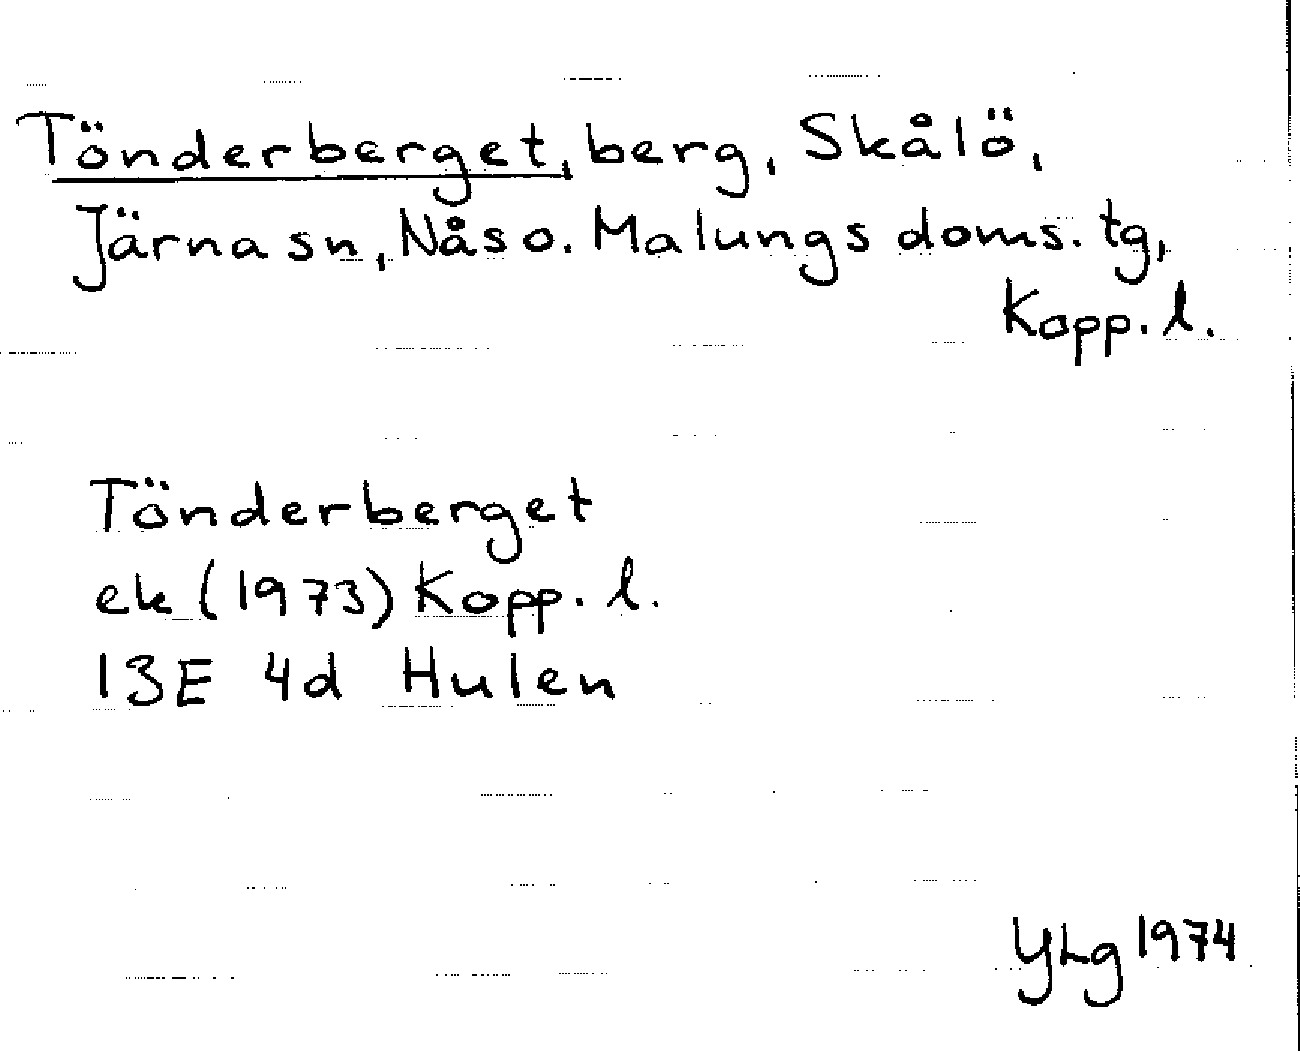 Tönderberget, berg, Skålö,
Järna sn, Nås o. Malungs doms. tg,
Kopp. l.
Tönderberget
ek (1973) Kopp. l.
13E 4d Hulen
YLg 1974